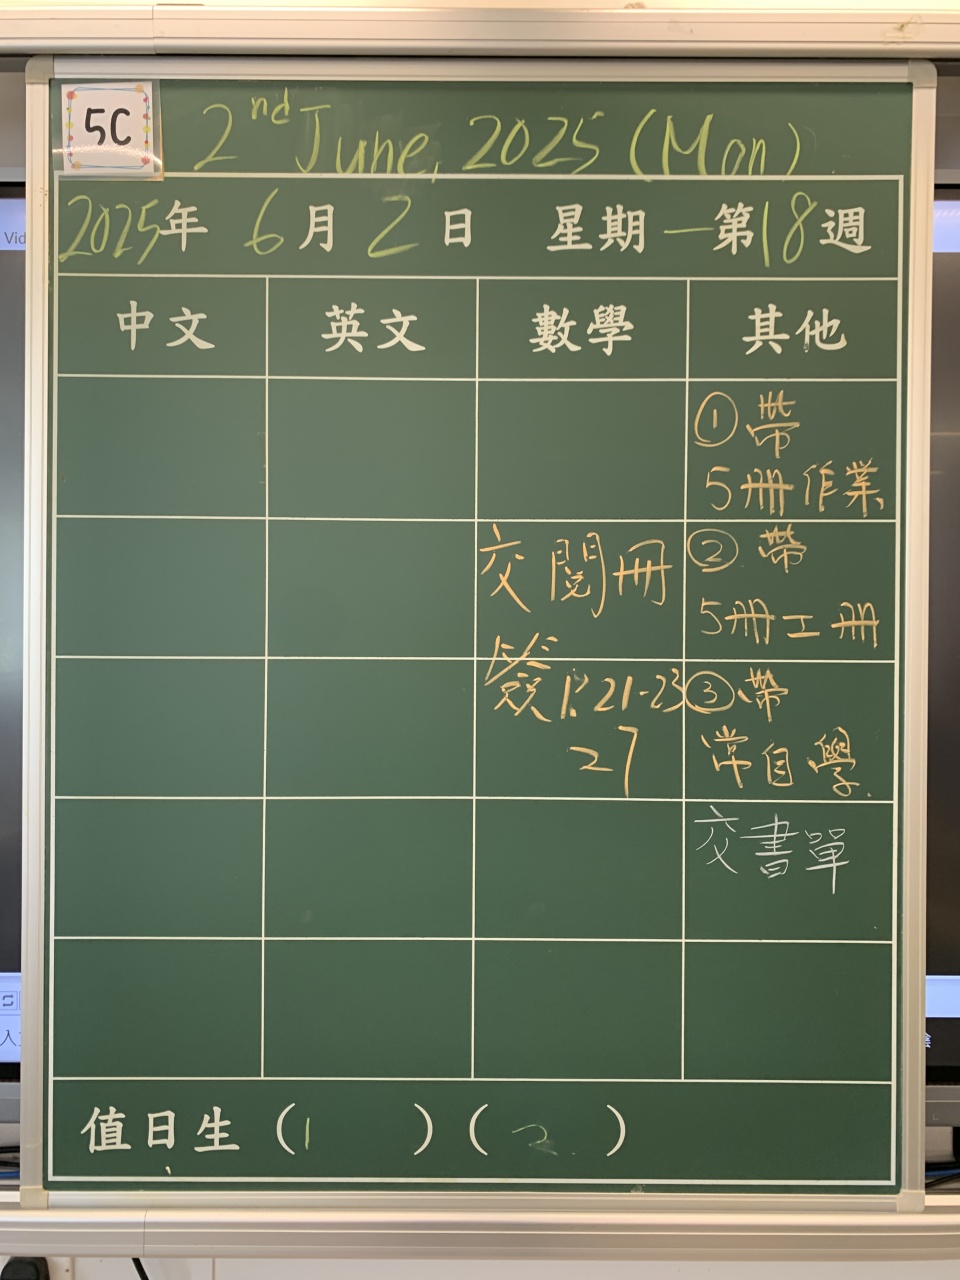 5C
2nd June, 2025 (Mon)
2025年 6月 2日 星期一 第18週
中文 英文 數學 其他
① 帶
5冊作業
交閱冊
② 帶
5冊工冊
簽P.21-23
27
③ 帶
常自學
交書單
值日生 (1 ) (2 )
Vid